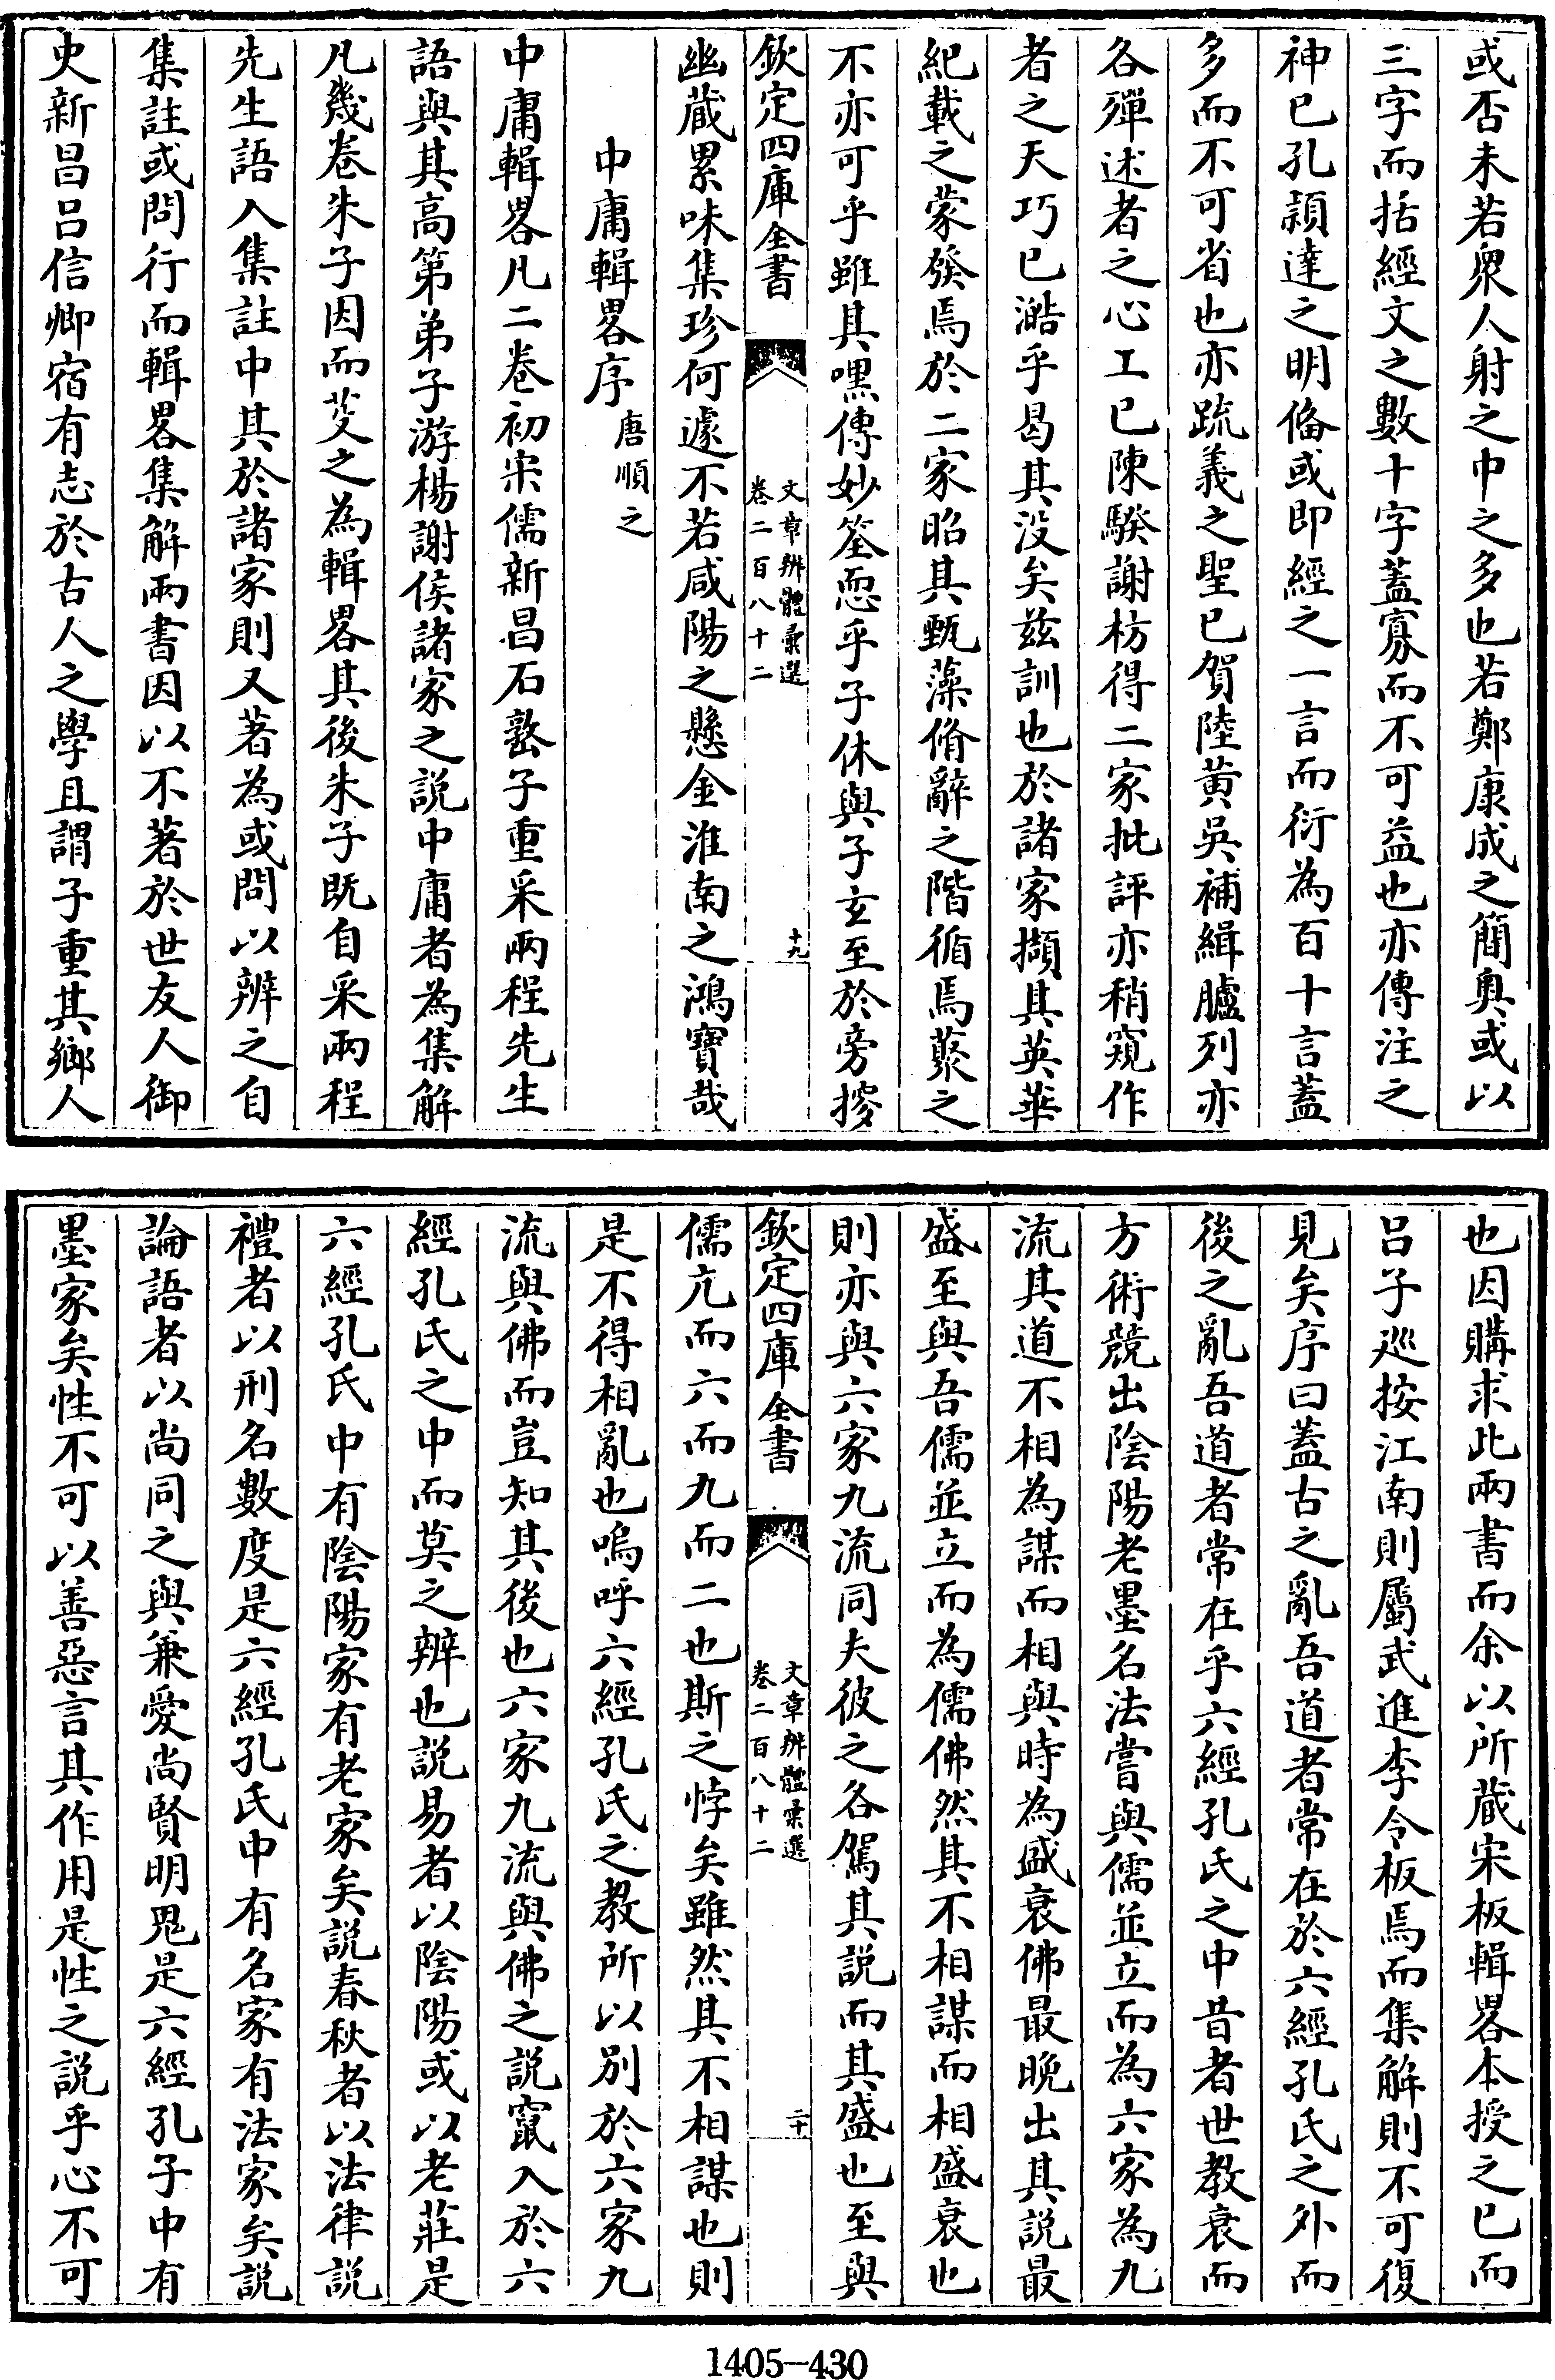 或否未若衆人射之中之多也若鄭康成之簡奥或以
三字而括經文之數十字蓋寡而不可益也亦傳注之
神已孔頴達之明偹或即經之一言而衍為百十言蓋
多而不可省也亦疏義之聖已賀陸黄吳補緝臚列亦
各殫述者之心工已陳騤謝枋得二家批評亦稍窺作
者之天巧已澔乎曷其没矣兹訓也於諸家擷其英華
紀載之蒙發焉於二家昭其甄藻脩辭之階循焉蕞之
不亦可乎雖其嘿傳妙筌恧乎子休與子玄至於旁摉
欽定四庫全書
文章辨體彚選
卷二百八十二
十九
幽蔵累味集珍何遽不若咸陽之懸金淮南之鴻寶哉
中庸輯畧序
唐順之
中庸輯畧凡二卷初宋儒新昌石𡼖子重采兩程先生
語與其高第弟子游楊謝侯諸家之説中庸者為集解
凡幾卷朱子因而芟之為輯畧其後朱子既自采兩程
先生語入集註中其於諸家則又著為或問以辨之自
集註或問行而輯畧集解兩書因以不著於世友人御
史新昌吕信卿宿有志於古人之學且謂子重其鄉人
也因購求此兩書而余以所蔵宋板輯畧本授之已而
吕子廵按江南則屬武進李令板焉而集解則不可復
見矣序曰蓋古之亂吾道者常在於六經孔氏之外而
後之亂吾道者常在乎六經孔氏之中昔者世教衰而
方術競出陰陽老墨名法嘗與儒並立而為六家為九
流其道不相為謀而相與時為盛衰佛最晩出其説最
盛至與吾儒並立而為儒佛然其不相謀而相盛衰也
則亦與六家九流同夫彼之各駕其説而其盛也至與
欽定四庫全書
文章辨體彚選
卷二百八十二
二十
儒亢而六而九而二也斯之悖矣雖然其不相謀也則
是不得相亂也嗚呼六經孔氏之教所以别於六家九
流與佛而豈知其後也六家九流與佛之説竄入於六
經孔氏之中而莫之辨也説易者以陰陽或以老莊是
六經孔氏中有陰陽家有老家矣説春秋者以法律説
禮者以刑名數度是六經孔氏中有名家有法家矣説
論語者以尚同之與兼愛尚賢明鬼是六經孔子中有
墨家矣性不可以善惡言其作用是性之説乎心不可
1405—430